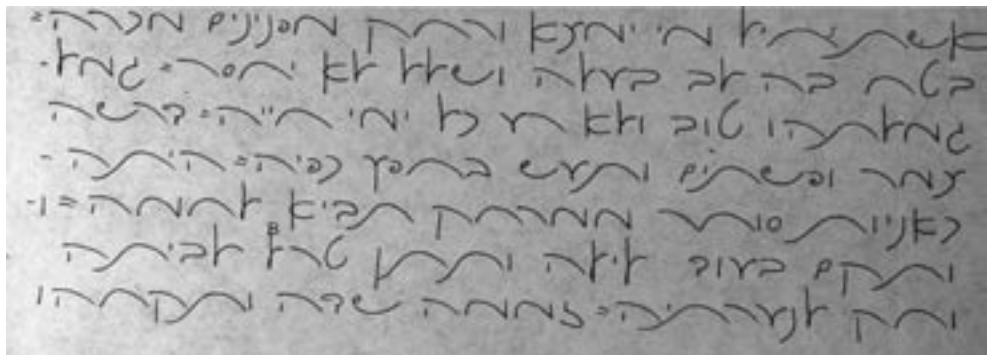 אשת חיל מי ימצא ורחק מפנינים מכרה =
בטח בה לב בעלה ושלל לא יחסר = גמל-
גמלתהו טוב ולא רע כל ימי חייה = דרשה
צמר ופשתים ותעש בחפץ כפיה = היתה -
כאניות סוחר ממרחק תביא לחמה = ו-
ותקם בעוד לילה ותתן טרף לביתה
וחק לנערתיה = זממה שדה ותקחהו